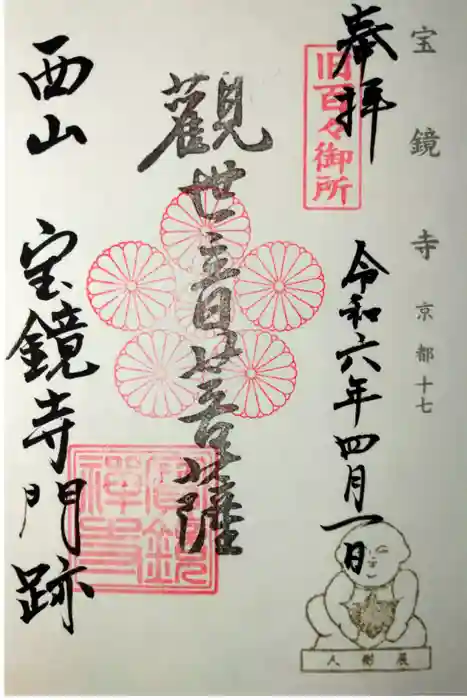 宝鏡寺 京都十七
奉拝
旧百々御所
令和六年四月一日
觀世音菩薩
西山 宝鏡寺門跡
寶鏡禅寺
人形展